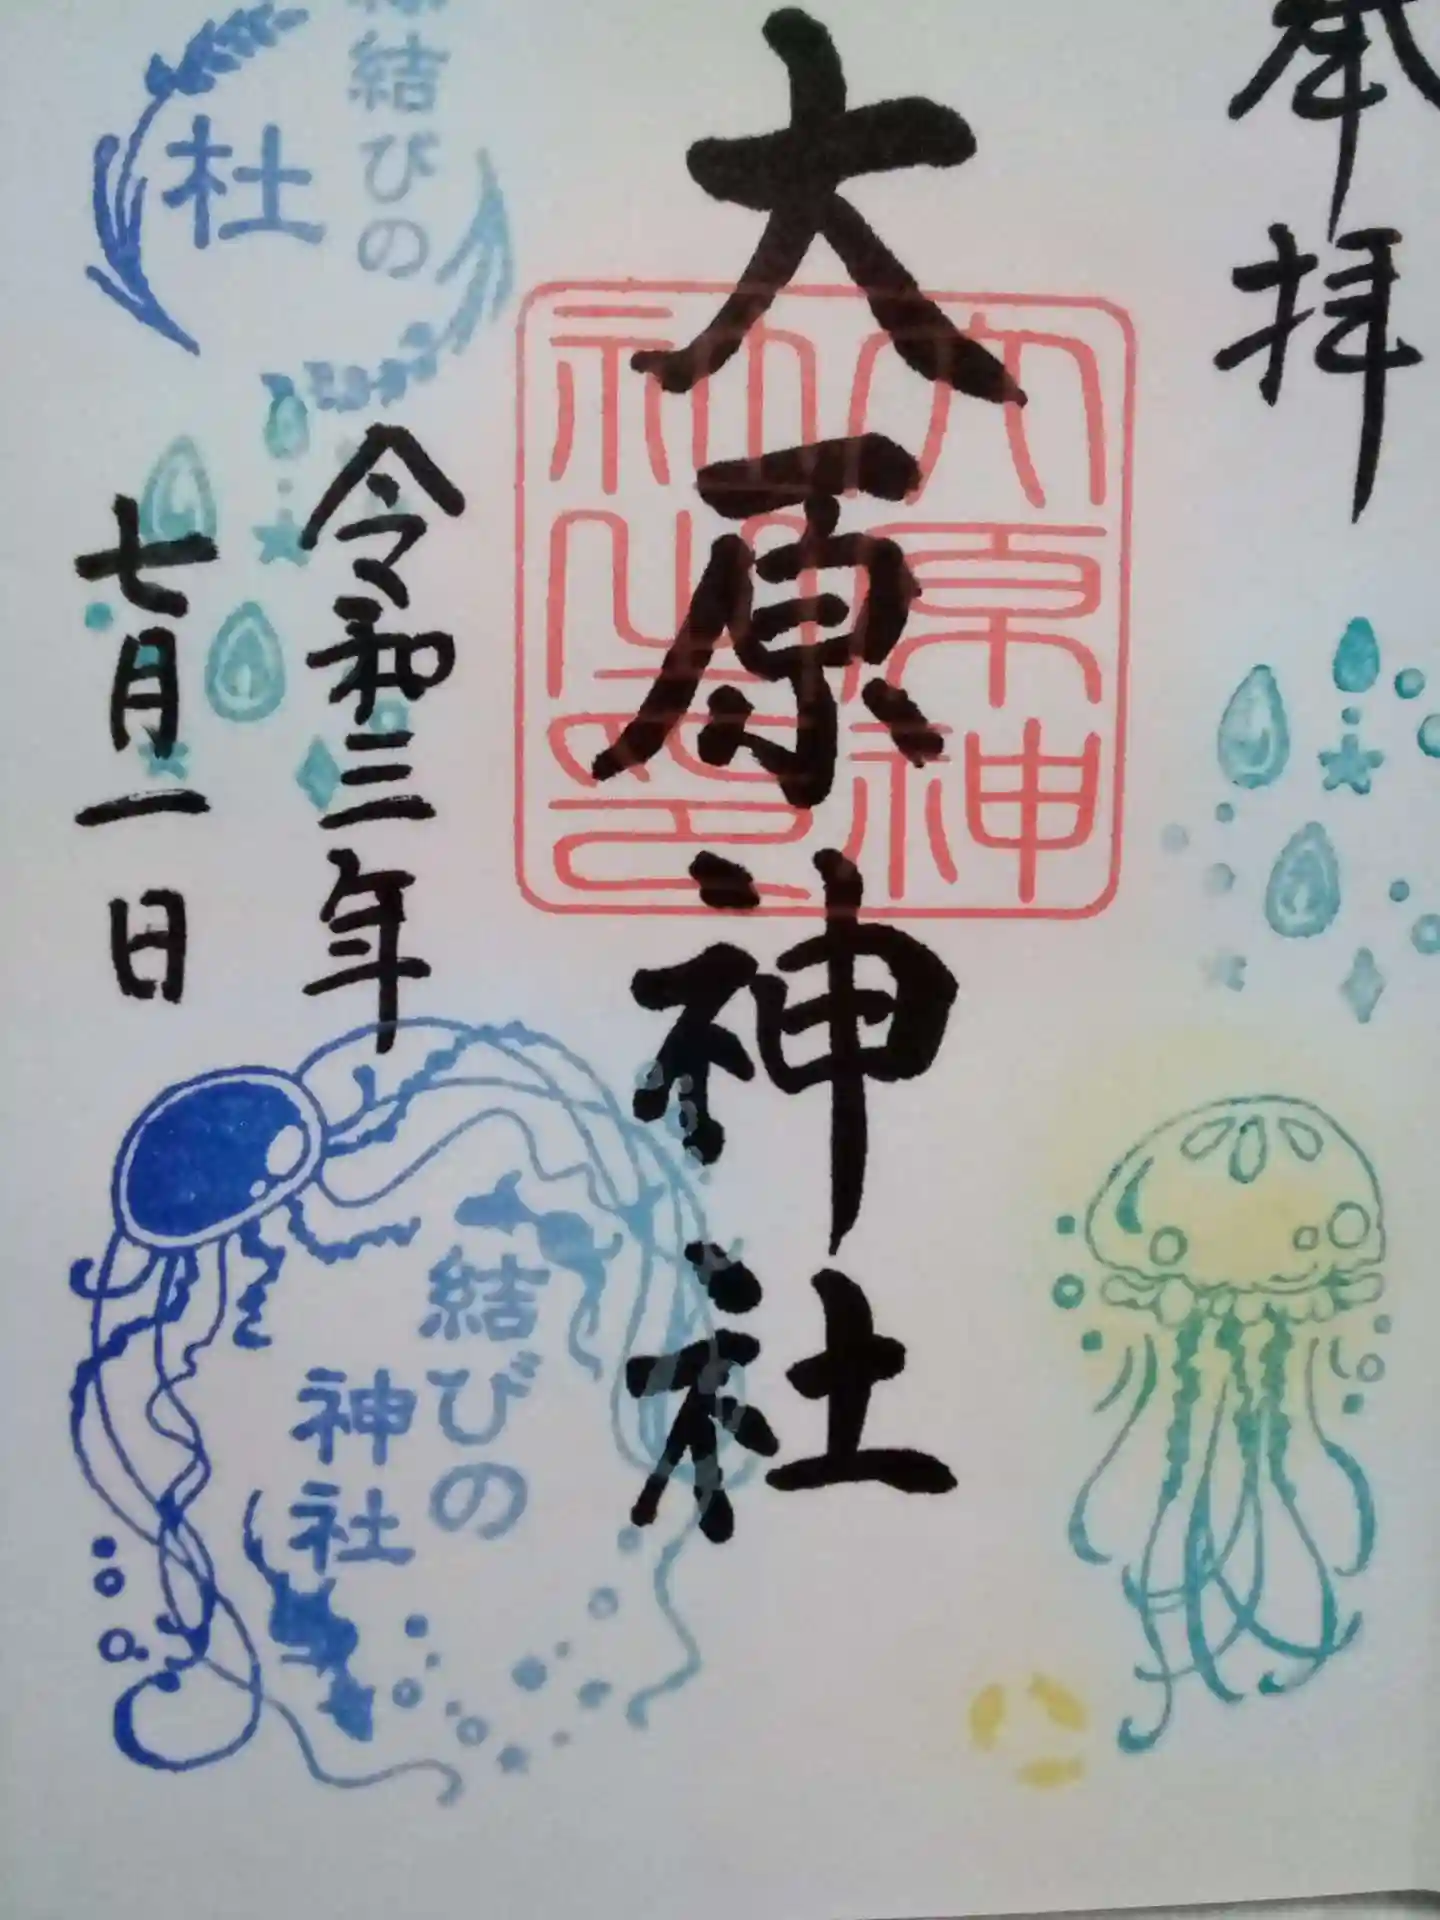 奉拝
大原神社
大原神
社之印
令和三年
七月一日
結びの
杜
結びの
神社